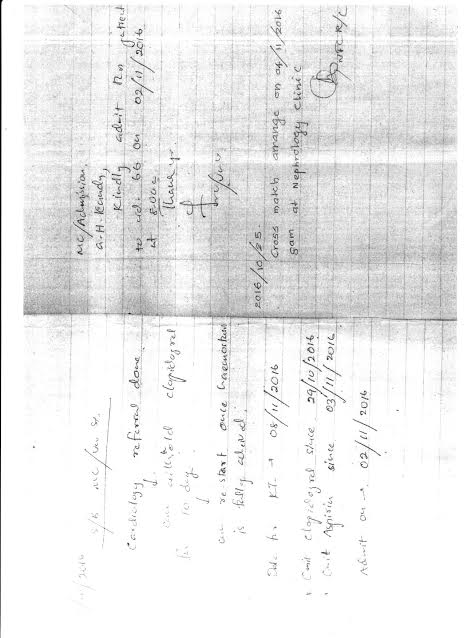 s/b
Cardiology referral done.
can withhold clopidogrel
for 10 days
can restart once haemostasis
is fully achieved.
Date for KT → 08/11/2016
Omit clopidogrel since 29/10/2016
Omit Aspirin since 03/11/2016
Admit on → 02/11/2016
MC/Admission.
G.H. Kandy,
Kindly admit this patient
to wd. 66 on 02/11/2016
at 8.00a
Thank you
2016/10/25.
Cross match arrange on 04/11/2016
8am at Nephrology Clinic